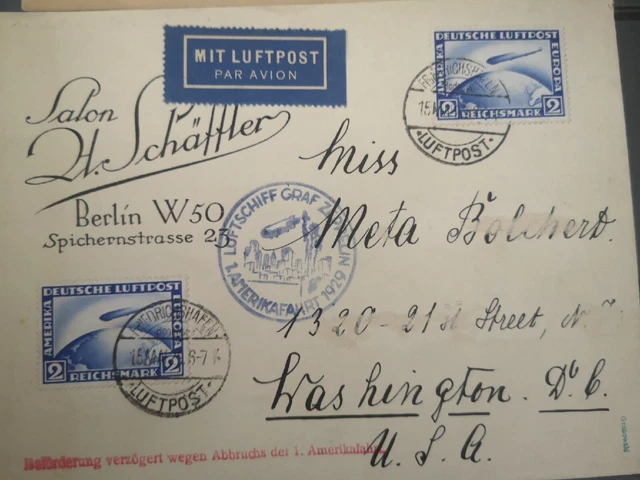 MIT LUFTPOST
PAR AVION
DEUTSCHE LUFTPOST
AMERIKA
EUROPA
2 REICHSMARK 2
FRIEDRICHSHAFEN
LUFTPOST
Salon
H. Schäffler
Berlin W50
Spichernstrasse 23
LUFTSCHIFF GRAF ZEPPELIN
1. AMERIKAFAHRT 1929
Miss
Meta Bolchert.
1320-21st Street, N.
Washington. D. C.
U. S. A.
DEUTSCHE LUFTPOST
AMERIKA
EUROPA
2 REICHSMARK 2
FRIEDRICHSHAFEN
LUFTPOST
Beförderung verzögert wegen Abbruchs der 1. Amerikafahrt